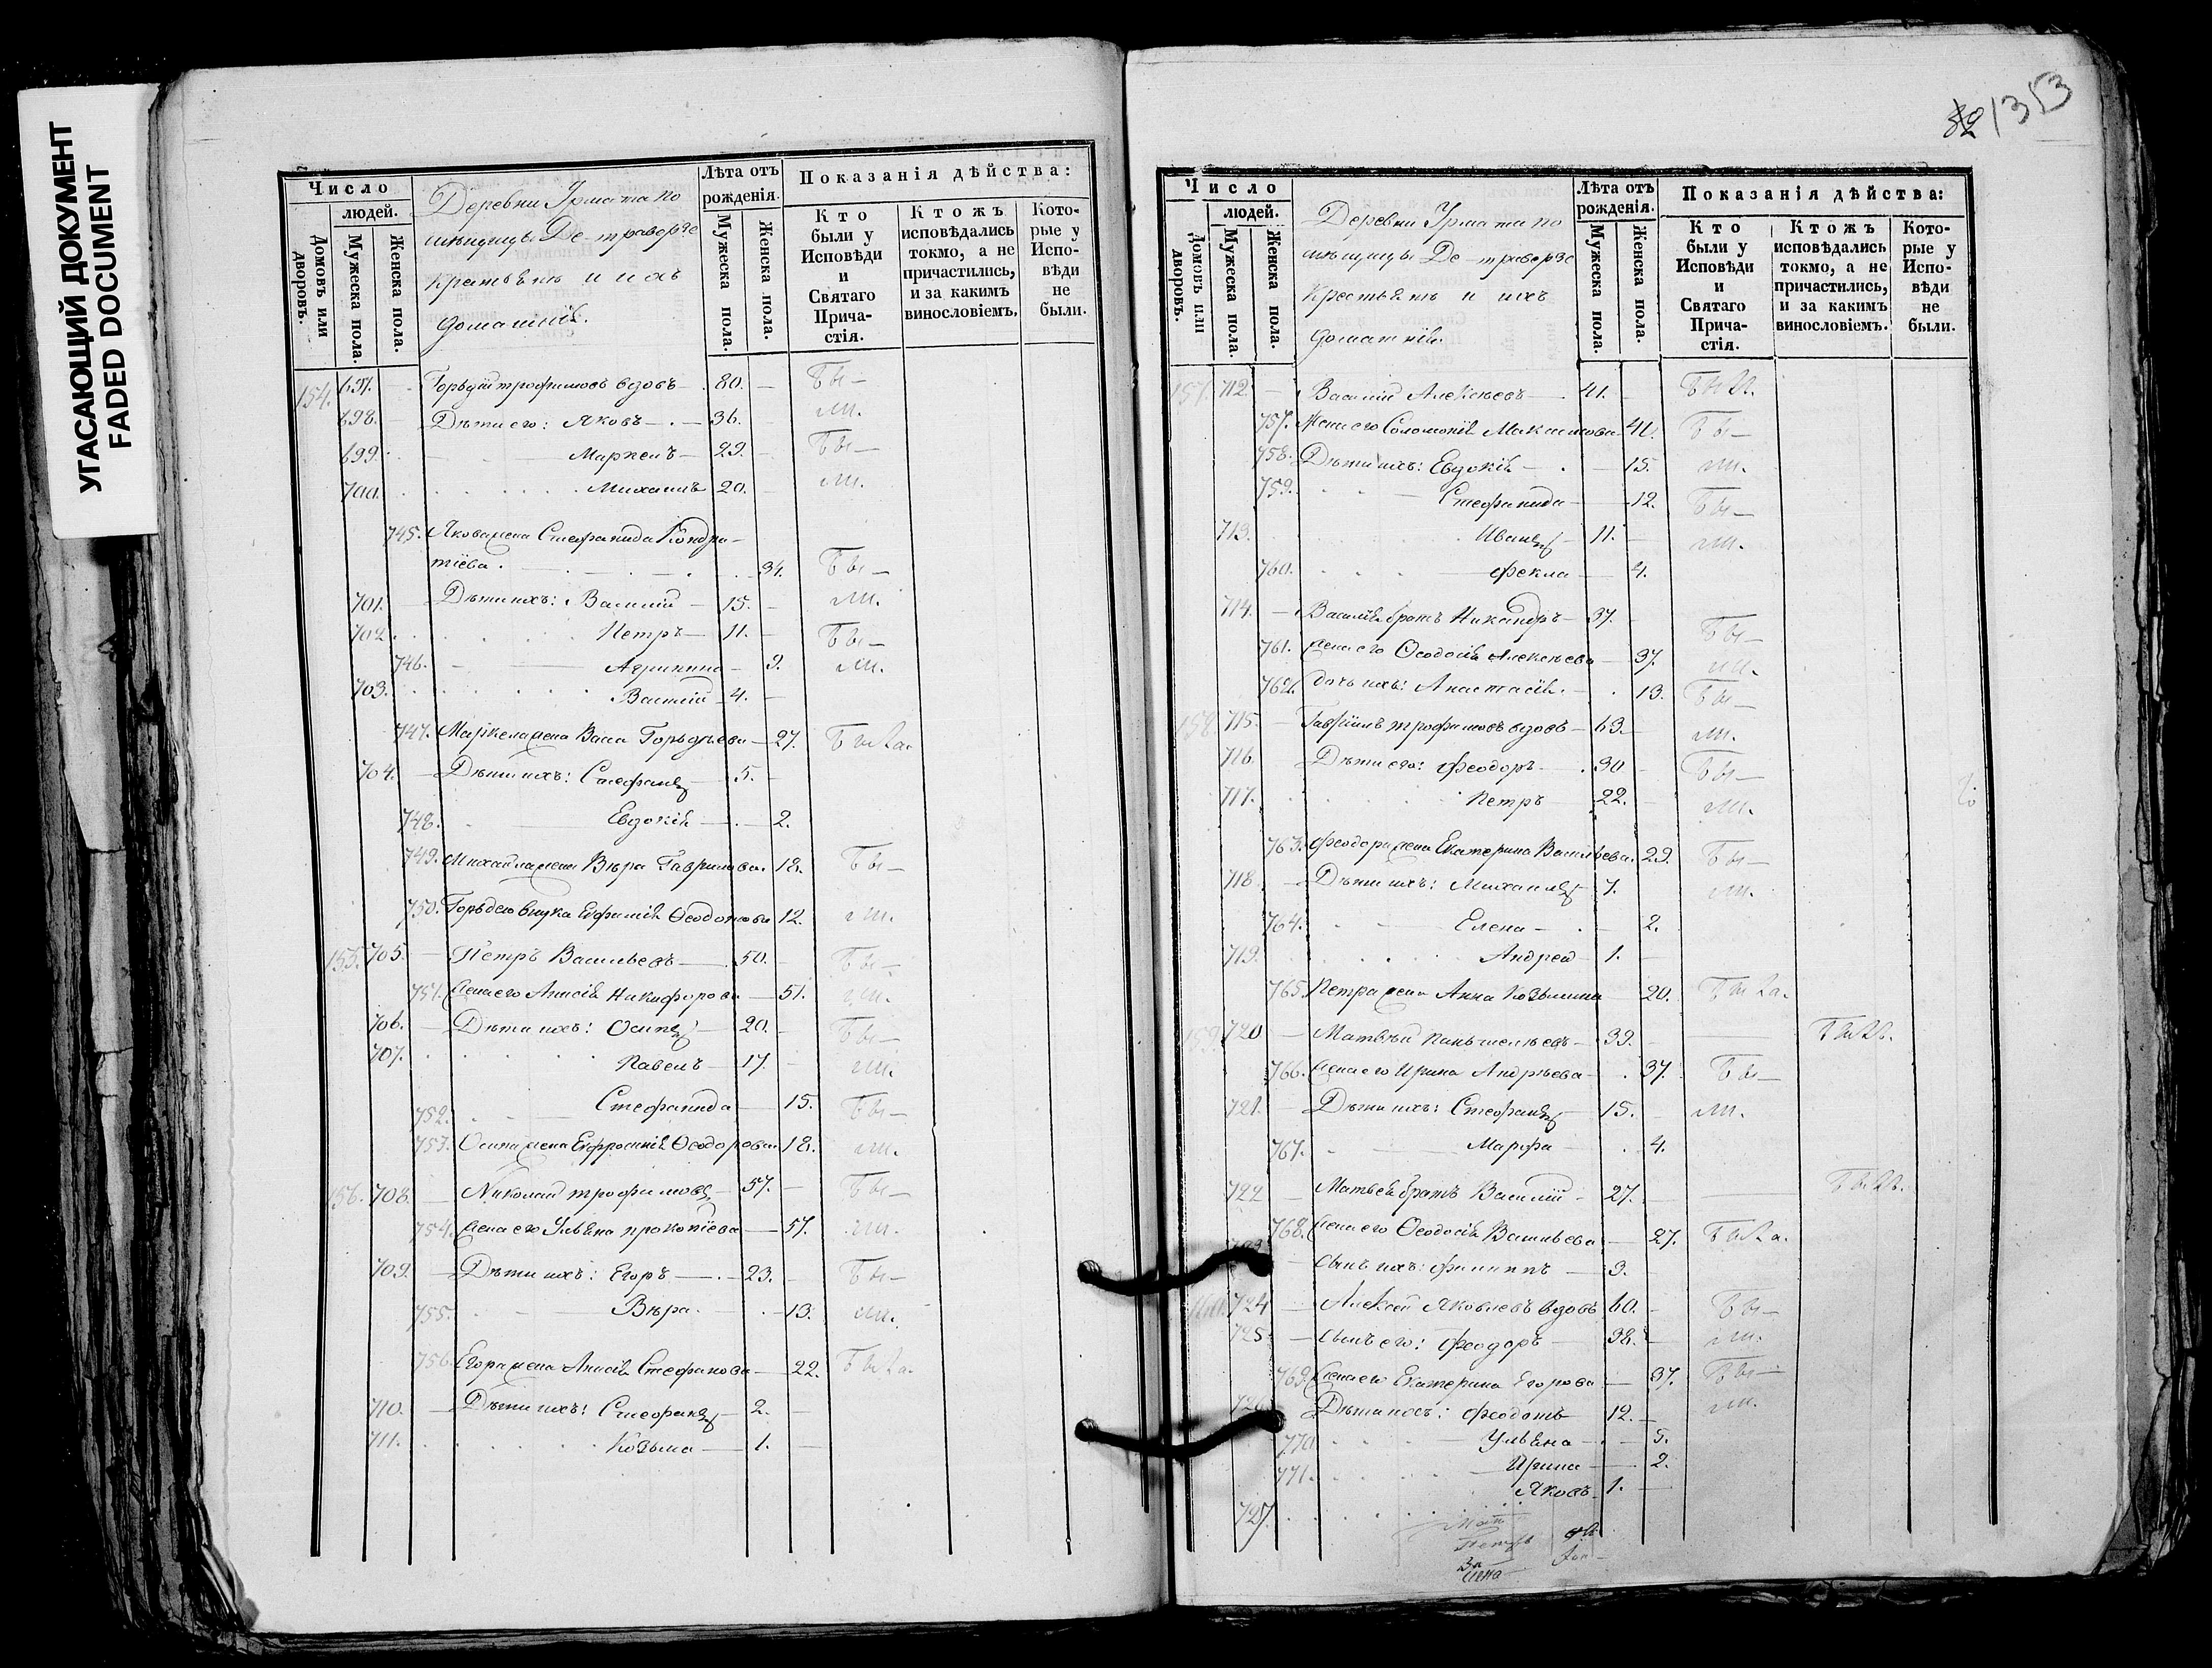 УГАСАЮЩИЙ ДОКУМЕНТ
FADED DOCUMENT
Число
людей.
Домовъ или дворовъ.
Мужеска пола.
Женска пола.
Деревни Урмата по
мѣщицы Де-траверзе
Крестьянъ и ихъ
домашнiе.
Лѣта отъ рожденія.
Мужеска пола.
Женска пола.
Показанія дѣйства:
Кто были у Исповѣди и Святаго Прича-стія.
Ктожъ исповѣдались токмо, а не причастились, и за какимъ винословіемъ.
Кото-рые у Испо-вѣди не были.
154. 697. Гордѣй трофимовъ вдовъ 80. Бы-
698. Дѣти его: Яковъ 36. ли.
699. Маркелъ 29. Бы-
700. Михаилъ 20. ли.
745. Якова жена Стефанида Кондра-
тіева 34. Бы-
701. Дѣти ихъ: Василій 15. ли.
702. Петръ 11. Бы-
746. 9. ли.
703. Василій 4.
747. Маркела жена Васса Гордѣева 27. Была.
704. Дѣти ихъ: Стефанъ 5.
748. Евдокія 2.
749. Михайла жена Вѣра Гаврилова 18. Бы-
750. Гордѣева внука Евфимія Ѳеодотова 12. ли.
155. 705. Петръ Васильевъ 50. Бы-
751. жена его Анисія Никифорова 51. ли.
706. Дѣти ихъ: Осипъ 20. Бы-
707. Павелъ 17. ли.
752. Стефанида 15. Бы-
753. Осипа жена Евфросинія Ѳеодорова 18. ли.
156. 708. Николай трофимовъ 57. Бы-
754. жена его Ульяна прокопіева 57. ли.
709. Дѣти ихъ: Егоръ 23. Бы-
755. Вѣра 13. ли.
756. Егора жена Анисія Стефанова 22. Была.
710. Дѣти ихъ: Стефанъ 2.
711. Козьма 1.
1353
Число
людей.
Домовъ или дворовъ.
Мужеска пола.
Женска пола.
Деревни Урмата по
мѣщицы Де-траверзе
Крестьянъ и ихъ
домашнiе.
Лѣта отъ рожденія.
Мужеска пола.
Женска пола.
Показанія дѣйства:
Кто были у Исповѣди и Святаго Прича-стія.
Ктожъ исповѣдались токмо, а не причастились, и за какимъ винословіемъ.
Кото-рые у Испо-вѣди не были.
157. 712. Василій Алексѣевъ 41. Былъ.
757. Жена его Соломонія Максимова 41. Бы-
758. Дѣти ихъ: Евдокія 15. ли.
759. Стефанида 12. Бы-
713. Иванъ 11. ли.
760. Фекла 4.
714. Василія братъ Никандръ 37. Бы-
761. жена его Ѳеодосія Алексѣева 37. ли.
762. дочь ихъ: Анастасія 13. Бы-
158. 715. Гавріилъ трофимовъ вдовъ 63. ли.
716. Дѣти его: Феодоръ 30 Бы-
717. Петръ 22. ли.
763. Феодора жена Екатерина Васильева 29. Бы-
718. Дѣти ихъ: Михаилъ 7. ли.
764. Елена 2.
719. Андрей 1.
765. Петра жена Анна Козьмина 20. Была.
159. 720 Матвѣй 39. Былъ.
766. жена его Ирина Андрѣева 37. Бы-
721. Дѣти ихъ: Стефанъ 15. ли.
767. Марфа 4.
722 Матвѣя братъ Василій 27. Былъ.
768. жена его Ѳеодосія Васильева 27. Была.
723 сынъ ихъ: Филиппъ 3.
160. 724 Алексѣй Яковлевъ вдовъ 60. Бы-
725 сынъ его: Феодоръ 38. ли.
769. жена его Екатерина Егорова 37. Бы-
726 Дѣти ихъ: Феодотъ 12. ли.
770. Ульяна 5.
771. Ирина 2.
727. Яковъ 1.